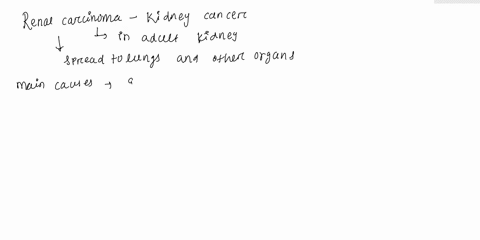 Renal carcinoma - Kidney cancer
↳ in adult kidney
↓ spread to lungs and other organs
main causes →